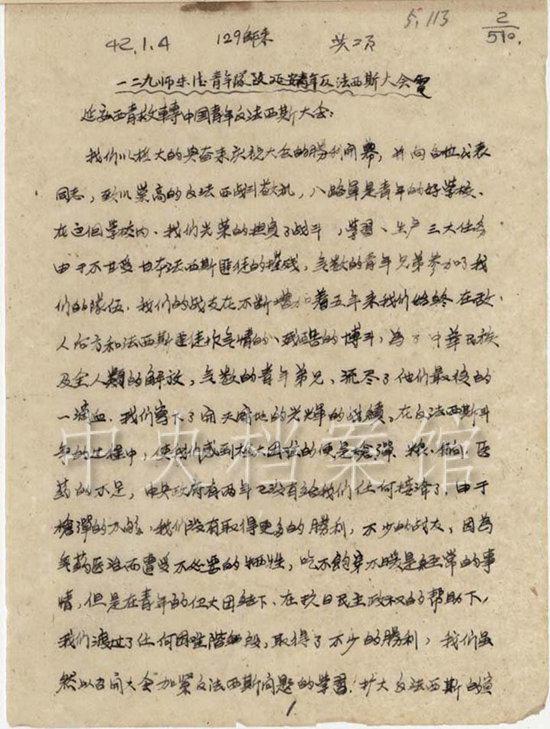 5.113
2/510.
42.1.4 129师来 共二页
一二九师朱德青年队致延安青年反法西斯大会电
延安西青救转中国青年反法西斯大会：
我们以极大的兴奋来庆祝大会的胜利开幕，并向各位代表
同志，致以崇高的反法西斯战斗敬礼，八路军是青年的好学校、
在这个学校内、我们光荣的担负了战斗，学习、生产三大任务
由于不甘受日本法西斯匪徒的摧残，无数的青年兄弟参加了我
们的队伍，我们的战友在不断增加着五年来我们始终在敌
人后方和法西斯匪徒作无情的、残酷的搏斗，为了中华民族
及全人类的解放，无数的青年弟兄，流尽了他们最后的
一滴血，我们写下了开天辟地的光辉的战绩，在反法西斯斗
争的过程中，使我们感到极大困难的便是枪弹、粮、饷、医
药的不足，中央政府有两年已没有给我们任何接济了，由于
枪弹的不够，我们没有取得更多的胜利，不少的战友，因为
无药医治而遭受不必要的牺牲，吃不饱穿不暖是经常的事
情，但是在青年的伟大团结下、在抗日民主政权的帮助下，
我们渡过了任何困难阶段，取得了不少的胜利，我们虽
然以召开大会加紧反法西斯问题的学习，扩大反法西斯的宣
1
中央档案馆